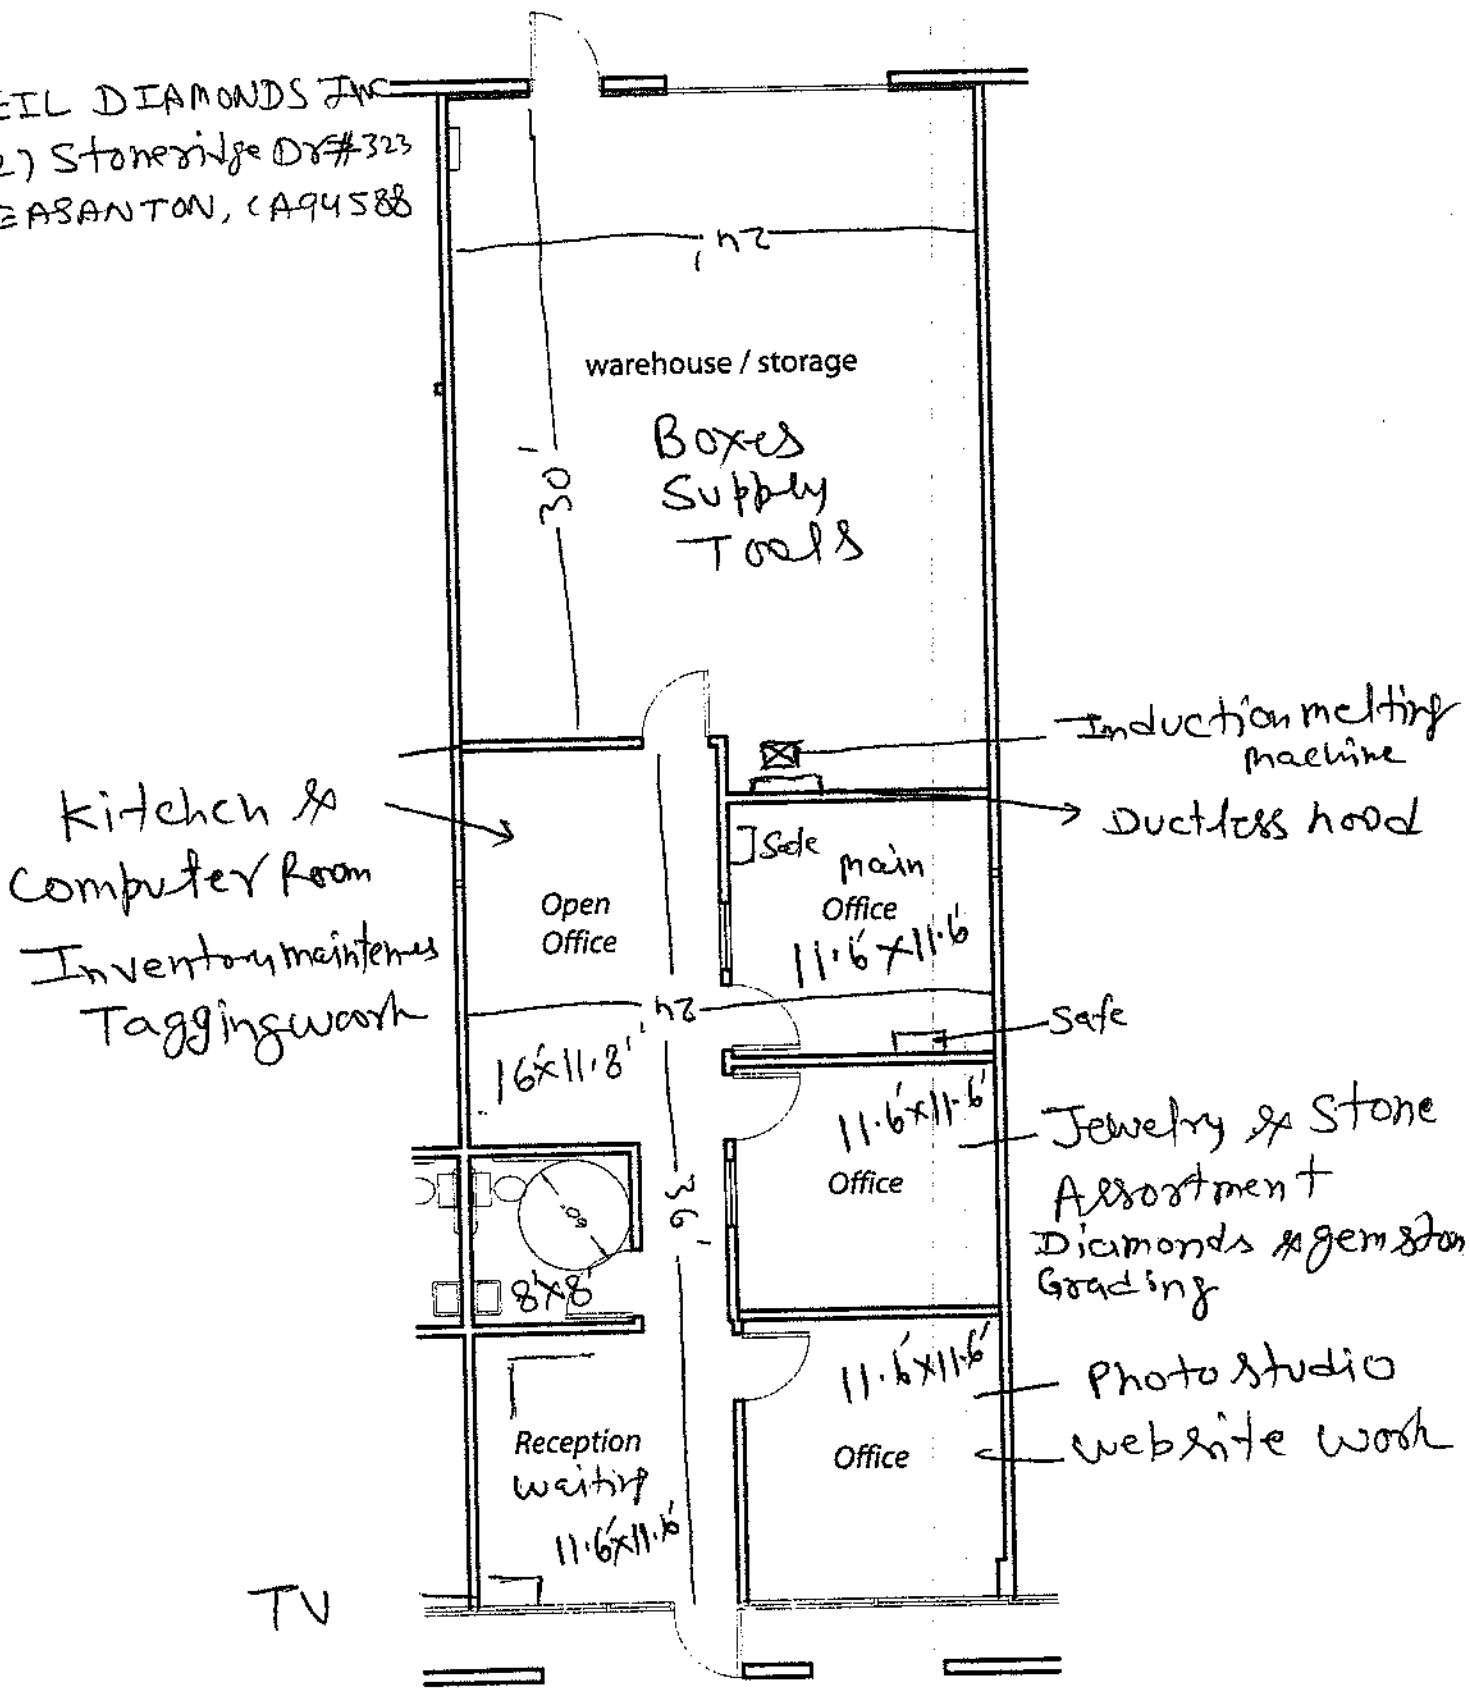 EIL DIAMONDS Inc
2) Stoneridge Dr #323
EASANTON, CA94588
24'
warehouse / storage
Boxes
Supply
Tools
30'
Induction melting
machine
Ductless hood
Kitchen &
Computer Room
Inventory maintenes
Tagging work
Safe
main
Office
11.6'x11.6'
Open
Office
24
Safe
16'x11.8'
11.6'x11.6'
Office
Jewelry & Stone
Assortment
Diamonds & gemston
Grading
36'
8'x8'
11.6'x11.6'
Office
Photo studio
website work
Reception
waiting
11.6'x11.6'
TV